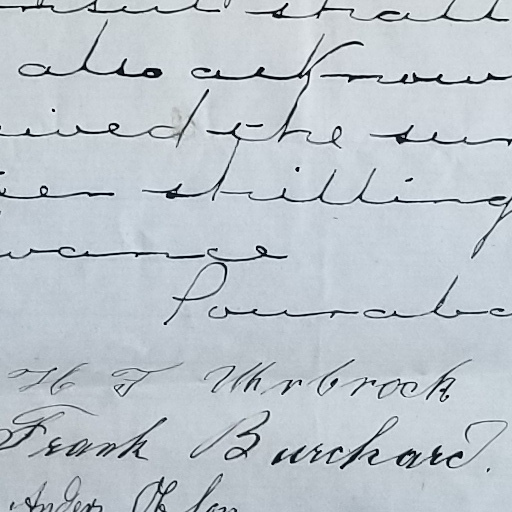 shall
also acknow
ived the su
een shilling
wance
Pouraba
H F Uhrbrock
Frank Burchard.
Anders